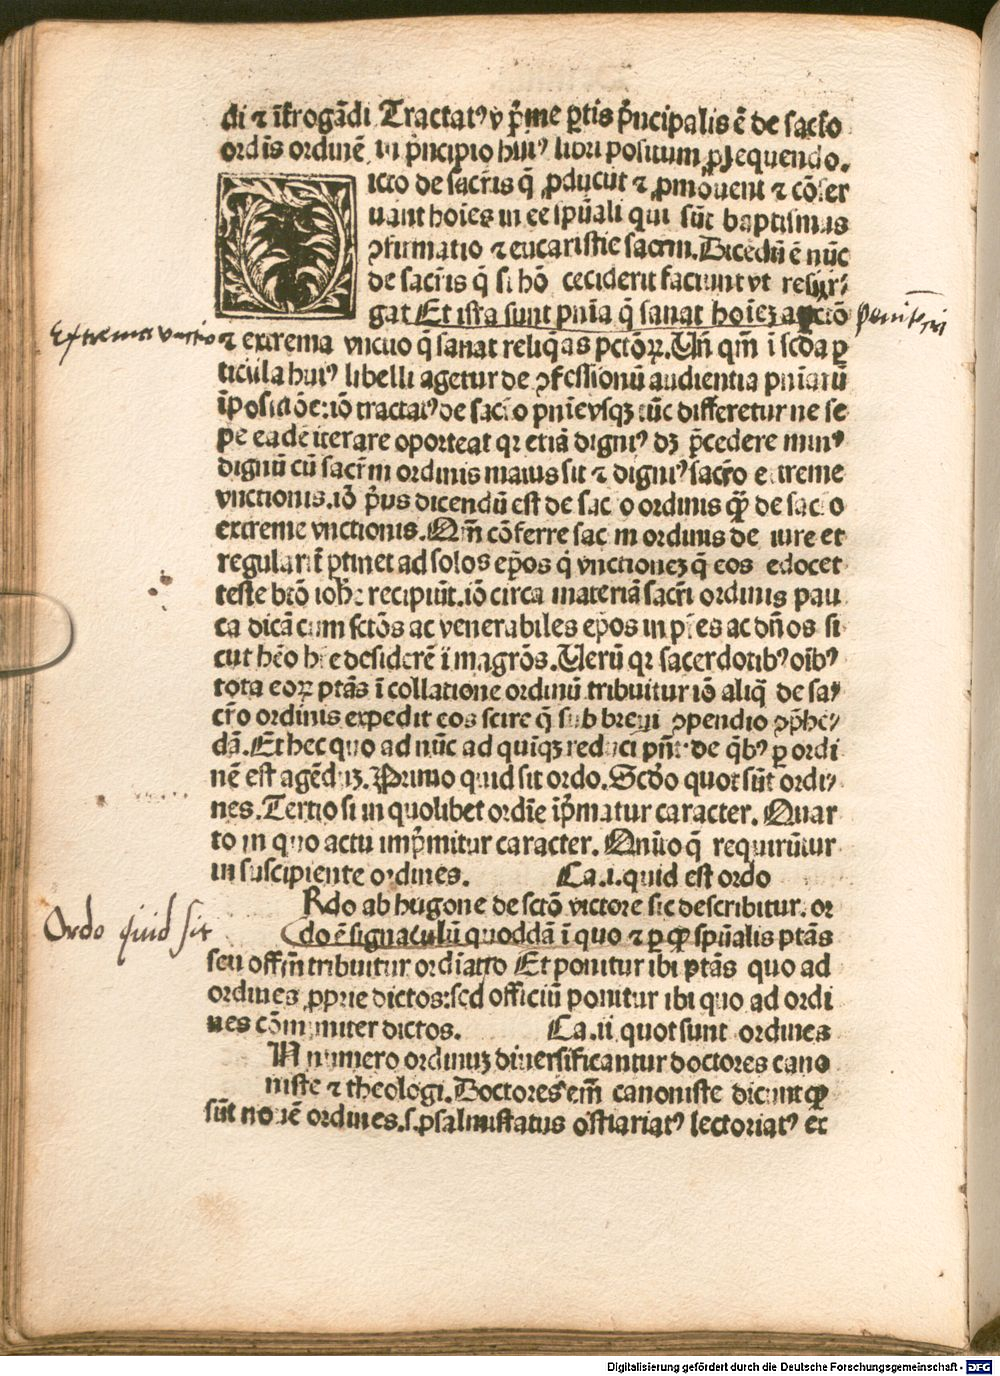 di ⁊ īt̄rogādi Tractatꝰ v p̄me ꝑtis pͥncipalis ē de sacr̄o
ordīs ordinē in pͥncipio huiꝰ libri positum ꝓsequendo.
icto de sacr̄is q̄ ꝓducūt ⁊ ꝓmouent ⁊ cōser
uant hoīes in ee spūali qui sūt baptismus
ꝯfirmatio ⁊ eucaristie sacrm. Dicedū ē nūc
de sacr̄is q̄ si hō ceciderit faciunt vt resur⸗
gat Et ista sunt pnīa q̄ sanat hoīeꝫ a pctō
penit̄ri
Extrema vnctio
⁊ extrema vnctio q̄ sanat reliqͣs pctōꝝ. Uñ qm̄ ī scd̄a ꝑ
ticula huiꝰ libelli agetur de ꝯfessionū audientia pnīarū
īpositiōe: iō tractatꝰ de sacr̄o pnīe vsqꝫ tūc differetur ne se
pe eadē iterare oporteat qr etiā digniꝰ dꝫ p̄cedere minꝰ
dignū cū sacr̄m ordinis maius sit ⁊ digniꝰ sacr̄o extreme
vnctionis. iō pͥus dicendū est de sacr̄o ordinis qꝫ de sacr̄o
extreme vnctionis. Qm̄ cōferre sacr̄m ordinis de iure et
regularit̄ ꝑtinet ad solos ep̄os qͥ vnctioneꝫ q̄ eos edocet
teste btō ioh̄e recipiūt. iō circa materiā sacr̄i ordinis pau
ca dicā cum sctōs ac venerabiles ep̄os in pr̄es ac dn̄os si
cut hēo h̄re desiderē ī magrōs. Uerū qr sacerdotibꝰ oībꝰ
tota eoꝝ ptās ī collatione ordinū tribuitur iō aliqͥ de sa⸗
cr̄o ordinis expedit eos scire q̄ sub breui ꝯpendio ꝯp̄he⸗
dā. Et hec quo ad nūc ad quiqꝫ reduci pn̄t de qͥbꝰ ꝑ ordi
nē est agēduꝫ. Primo quid sit ordo. Scd̄o quot sūt ordi⸗
nes. Tertio si in quolibet ordīe īpͥmatur caracter. Quar
to in quo actu impͥmitur caracter. Quīto q̄ requirūtur
in suscipiente ordines. Ca. i. quid est ordo
Ordo quid sit
Rdo ab hugone de sctō victore sic describitur. or
do ē signaculū quoddā ī quo ⁊ ꝑ qꝫ spūalis ptās
seu offm̄ tribuitur ordīatto Et ponitur ibi ptās quo ad
ordines ꝓprie dictos: sed officiū ponitur ibi quo ad ordi
nes cōmuniter dictos. Ca. ii quot sunt ordines
IN numero ordinuꝫ diuersificantur doctores cano
niste ⁊ theologi. Doctores em̄ canoniste dicunt qꝫ
sūt nouē ordines. s. psalmistatus ostiariatꝰ lectoriatꝰ ex
Digitalisierung gefördert durch die Deutsche Forschungsgemeinschaft - DFG